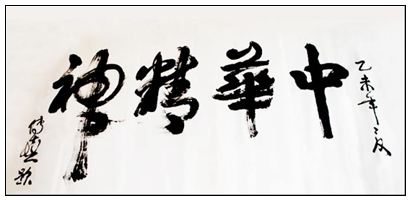 乙未年之夏
中華精神